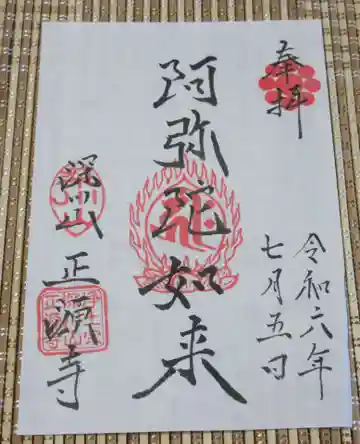 奉拝
令和六年
七月五日
阿弥陀如来
正
寺